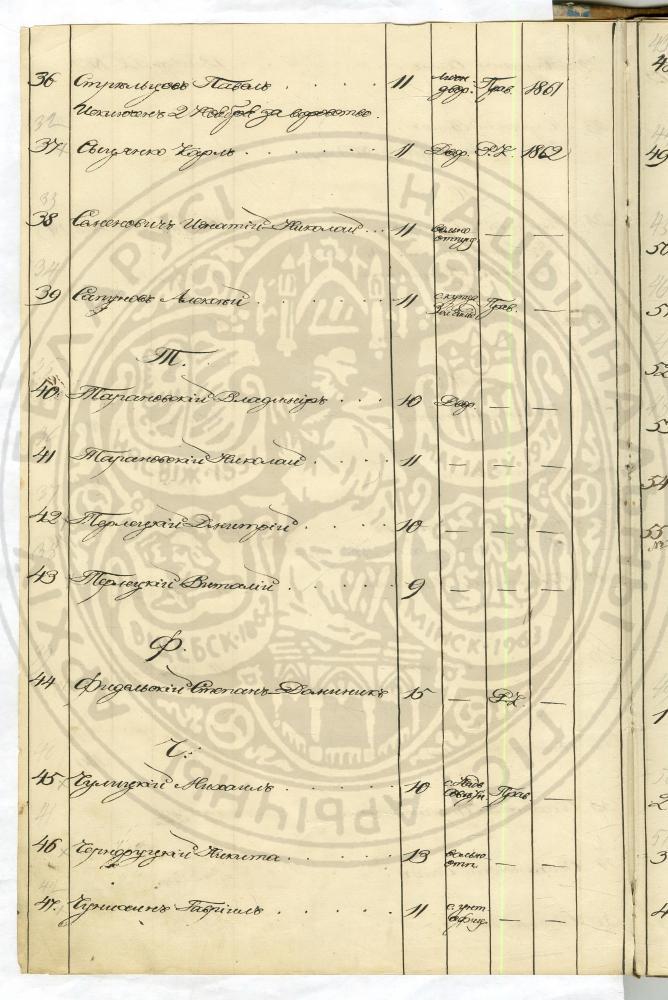 36 Стрѣльцовъ Павелъ 11 двор. Прав. 1861
Исключенъ 2 Ноября за воровство.
37 Сыцянко Карлъ 11 Двор. Р.К. 1862
38 Семеновичъ Игнатій-Николай 11 вольно отпущ. — —
39 Сапуновъ Алексѣй 11 с. купца Прав. —
Т.
40. Тарановскій Владиміръ 10 Двор. — —
41 Тарановскій Николай 11 — — —
42 Терлецкій Дмитрій 10 — — —
43 Терлецкій Виталій 9 — — —
Ф.
44 Фидельскій Степанъ-Доминикъ 15 — Р.К. —
Ч.
45 Чулицкій Михаилъ 10 Прав. —
46 Никита 13 вольно отп. — —
47. Гавріилъ 11 с. унт. офиц. — —